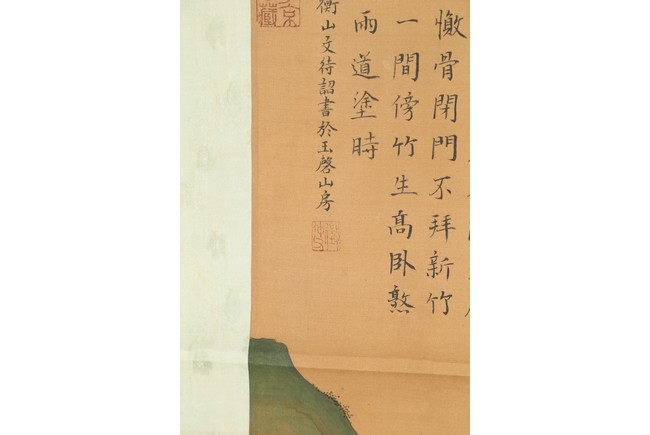 骨閉門不拜新竹
一間傍竹生髙卧
雨道塗時
衡山文待詔書於玉磬山房